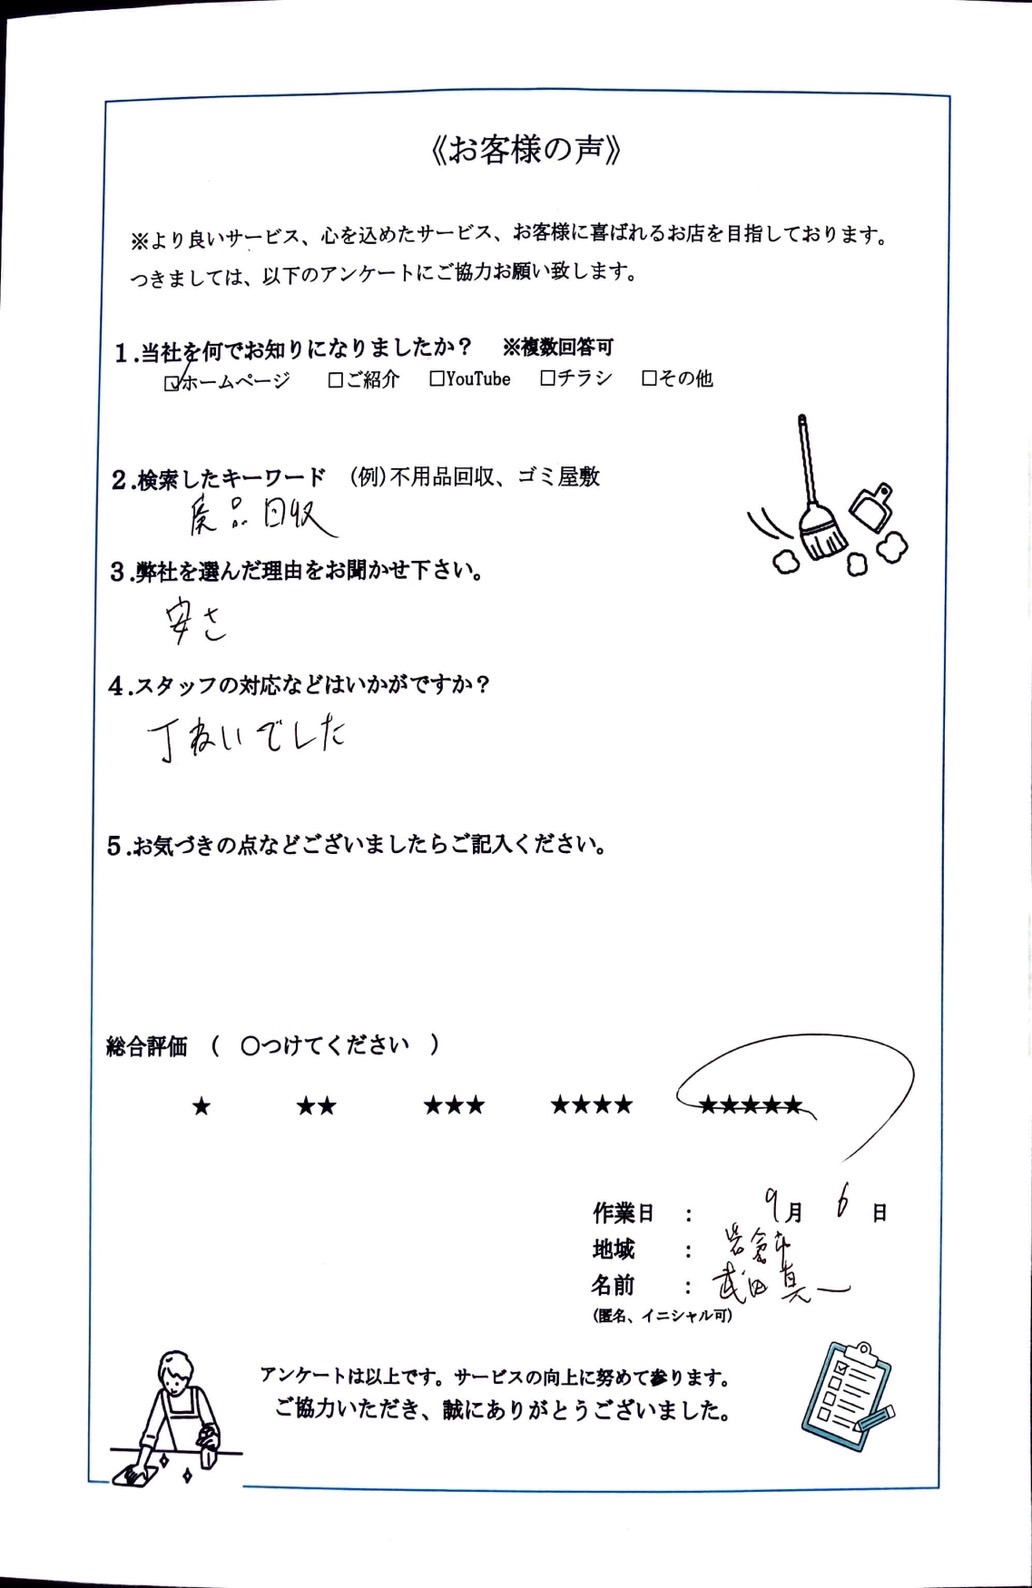 《お客様の声》
※より良いサービス、心を込めたサービス、お客様に喜ばれるお店を目指しております。
つきましては、以下のアンケートにご協力お願い致します。
1.当社を何でお知りになりましたか？ ※複数回答可
☑ホームページ □ご紹介 □YouTube □チラシ □その他
2.検索したキーワード (例)不用品回収、ゴミ屋敷
廃品回収
3.弊社を選んだ理由をお聞かせ下さい。
安さ
4.スタッフの対応などはいかがですか？
丁ねいでした
5.お気づきの点などございましたらご記入ください。
総合評価 ( 〇つけてください )
★ ★★ ★★★ ★★★★ ★★★★★
作業日 : 9月 6日
地域 : 岩倉市
名前 : 武田真一
(匿名、イニシャル可)
アンケートは以上です。サービスの向上に努めて参ります。
ご協力いただき、誠にありがとうございました。